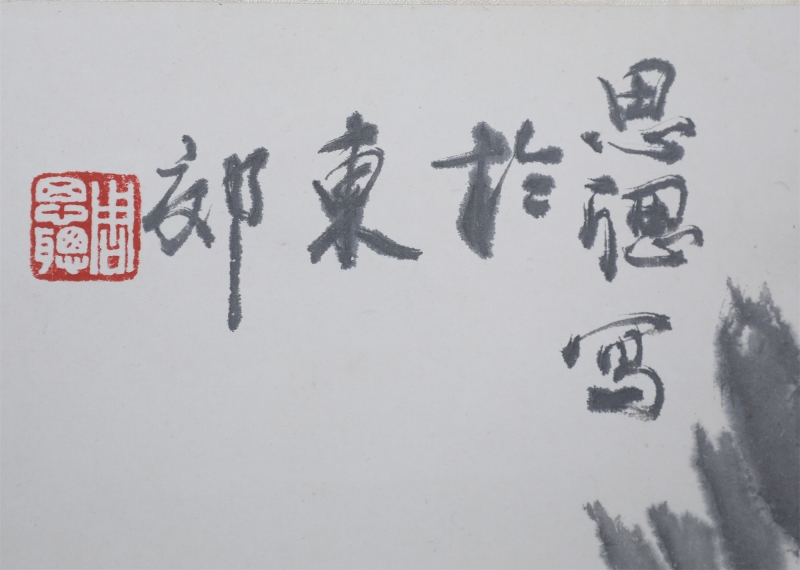 思聰寫
於
東
郊
周
思聰